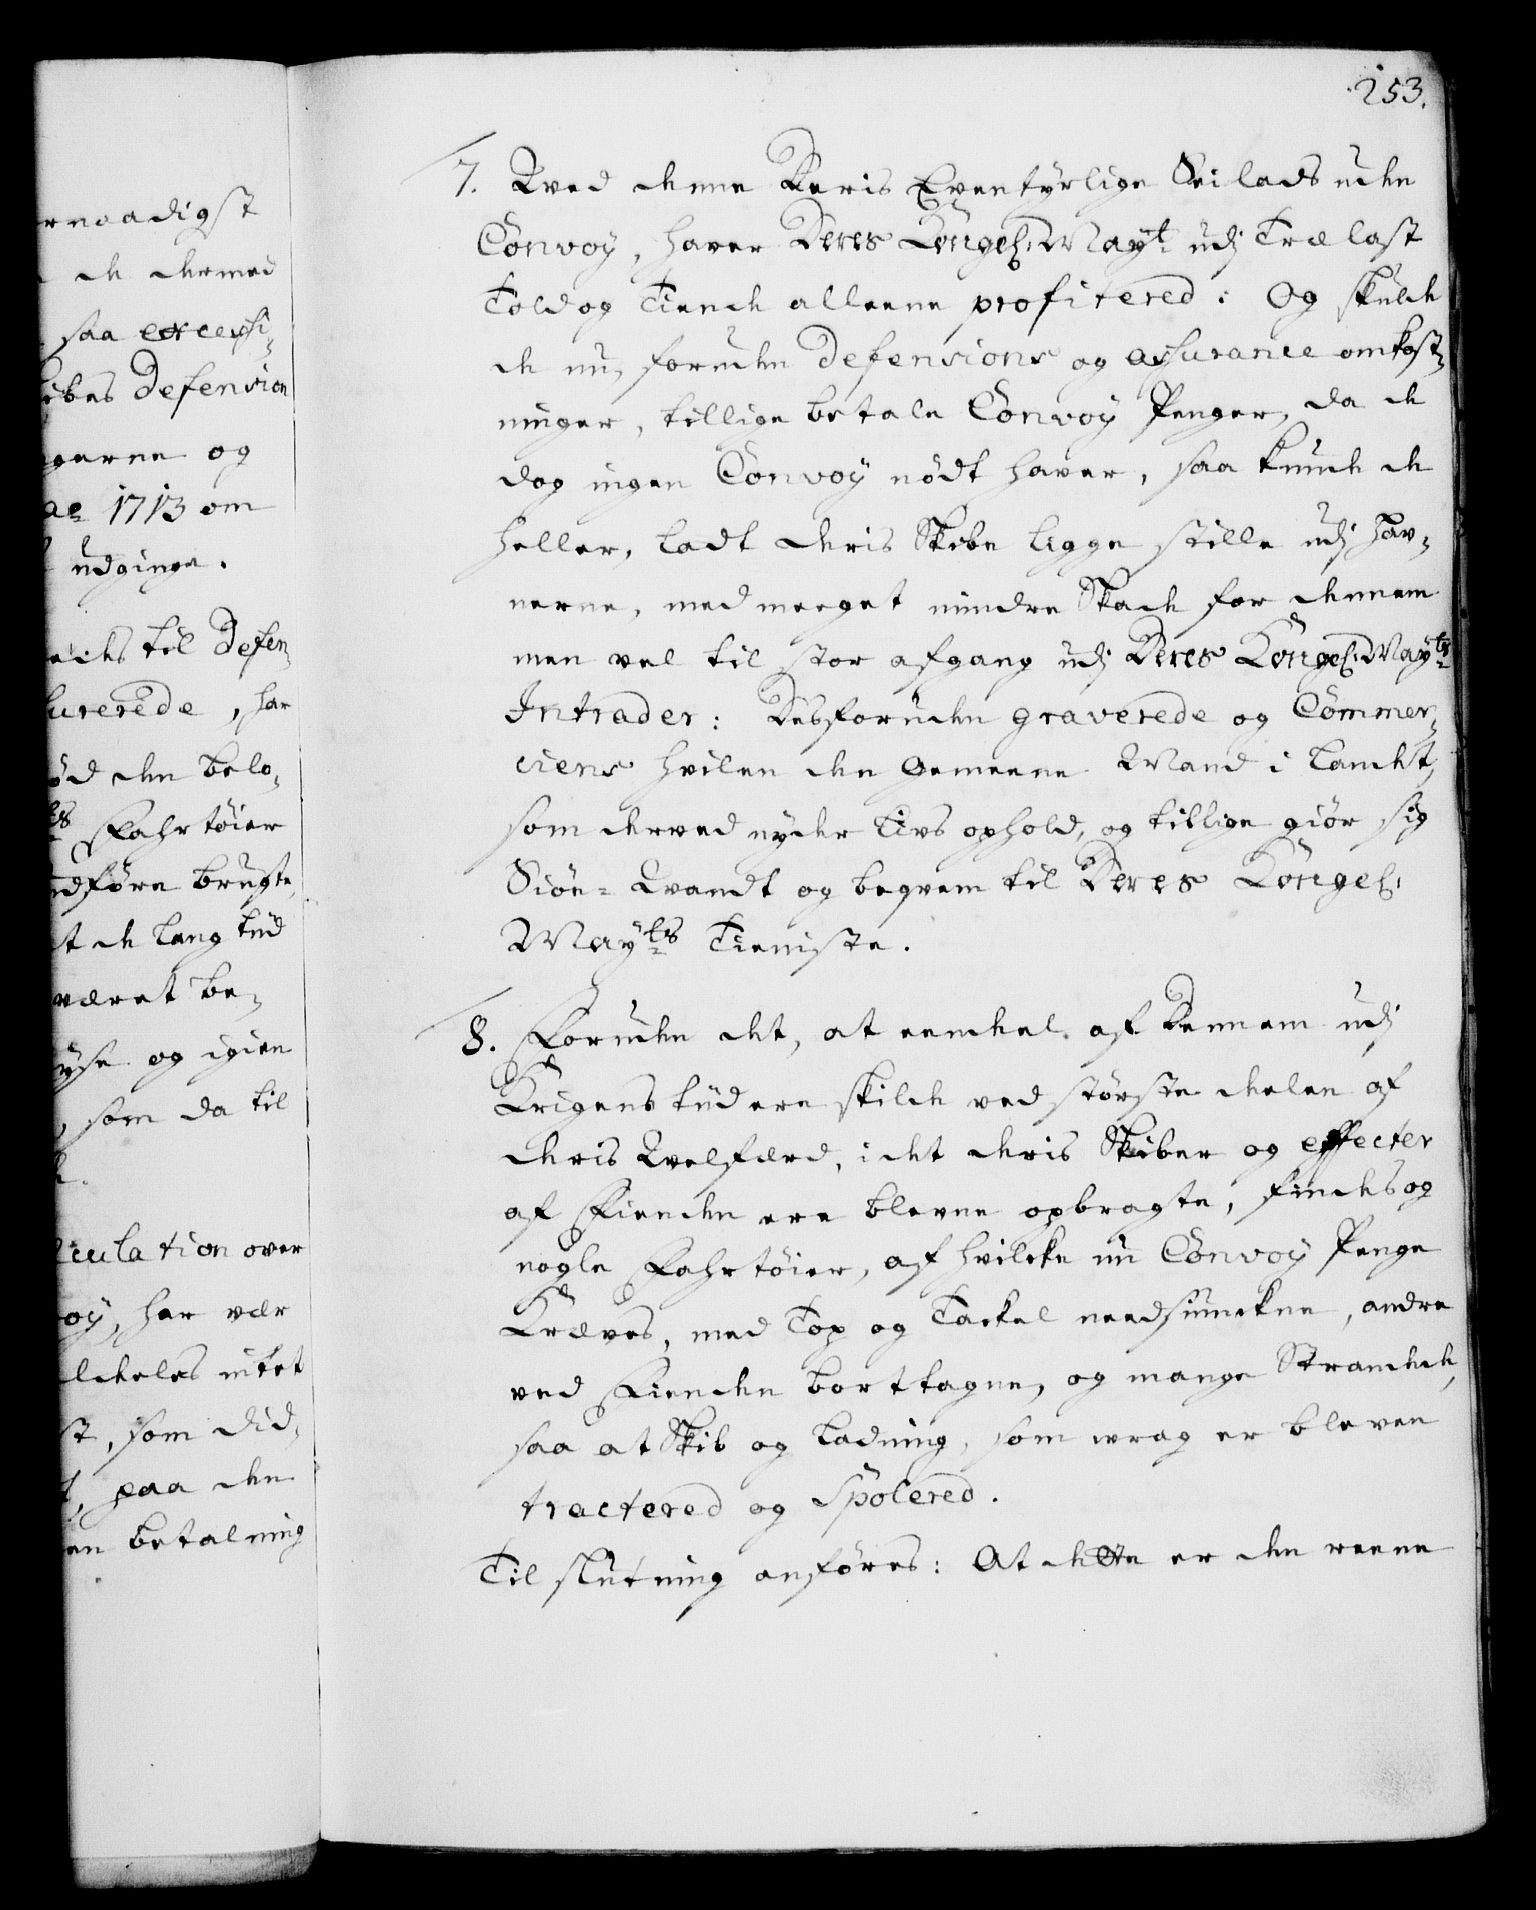 253.
7. Wed denne Deris Eventyrlige Seilads uden
Convoy, haver Deres Kongel: Mayt udj Trælast
Told og Tiende alleene profitered: Og skulde
de nu, foruden Defensions og assurance omkost¬
ninger, tillige betale Convoy Penger, da de
dog ingen Convoy nødt haver, saa kunde de
heller, ladt deris Skibe ligge stille udj Hav¬
nerne, med meeget mindre Skade for dennem
men vel til stor afgang udj Deres Kongel: Mayts
Intrader: Desforuden graverede og Commer¬
ciens hvilen den Gemeene Mand i Landet,
som derved nyder Livs ophold, og tillige giør sig
Siøe-Vandt og beqvem til Deres Kongel:
Mayts Tieniste.
8. Foruden det, at eendeel af Dennem udj
Krigens tiid ere skilde ved største delen af
deris Velfærd, i det deris Skiber og effecter
af Fienden ere blevne opbragte, findes og
nogle Fahrtøier, af hvilcke nu Convoy Penge
Kræves, med Top og Tackel needsunckne, andre
ved Fienden borttagne, og mange Strandede,
saa at Skib og Ladning, som wrag er bleven
tractered og Spolered.
Til slutning anføres: At dette er den reene
rnaadigst
de dermed
saa excessi¬
ibes Defension
gerne og
1713 om
udginge.
til Defen¬
urerede, har
den belo¬
Fahrtøier
dføre brugte,
t de lang tiid
været be¬
yse og igien
, som da til
culation over
oy, har vær
ldeles intet
st, som did¬
t, paa den
en betalning